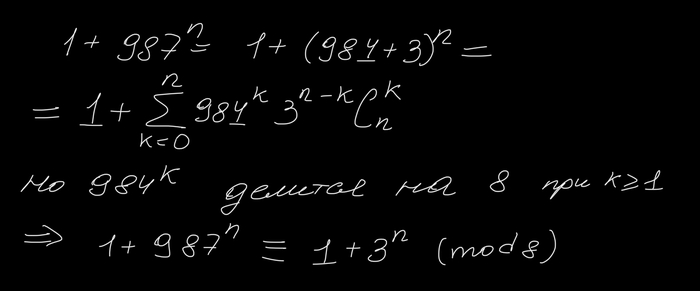 1 + 987ⁿ = 1 + (984 + 3)ⁿ =
= 1 + ∑_{k=0}^{n} 984ᵏ 3ⁿ⁻ᵏ Cₙᵏ
но 984ᵏ делится на 8 при k ≥ 1
⇒ 1 + 987ⁿ ≡ 1 + 3ⁿ (mod 8)